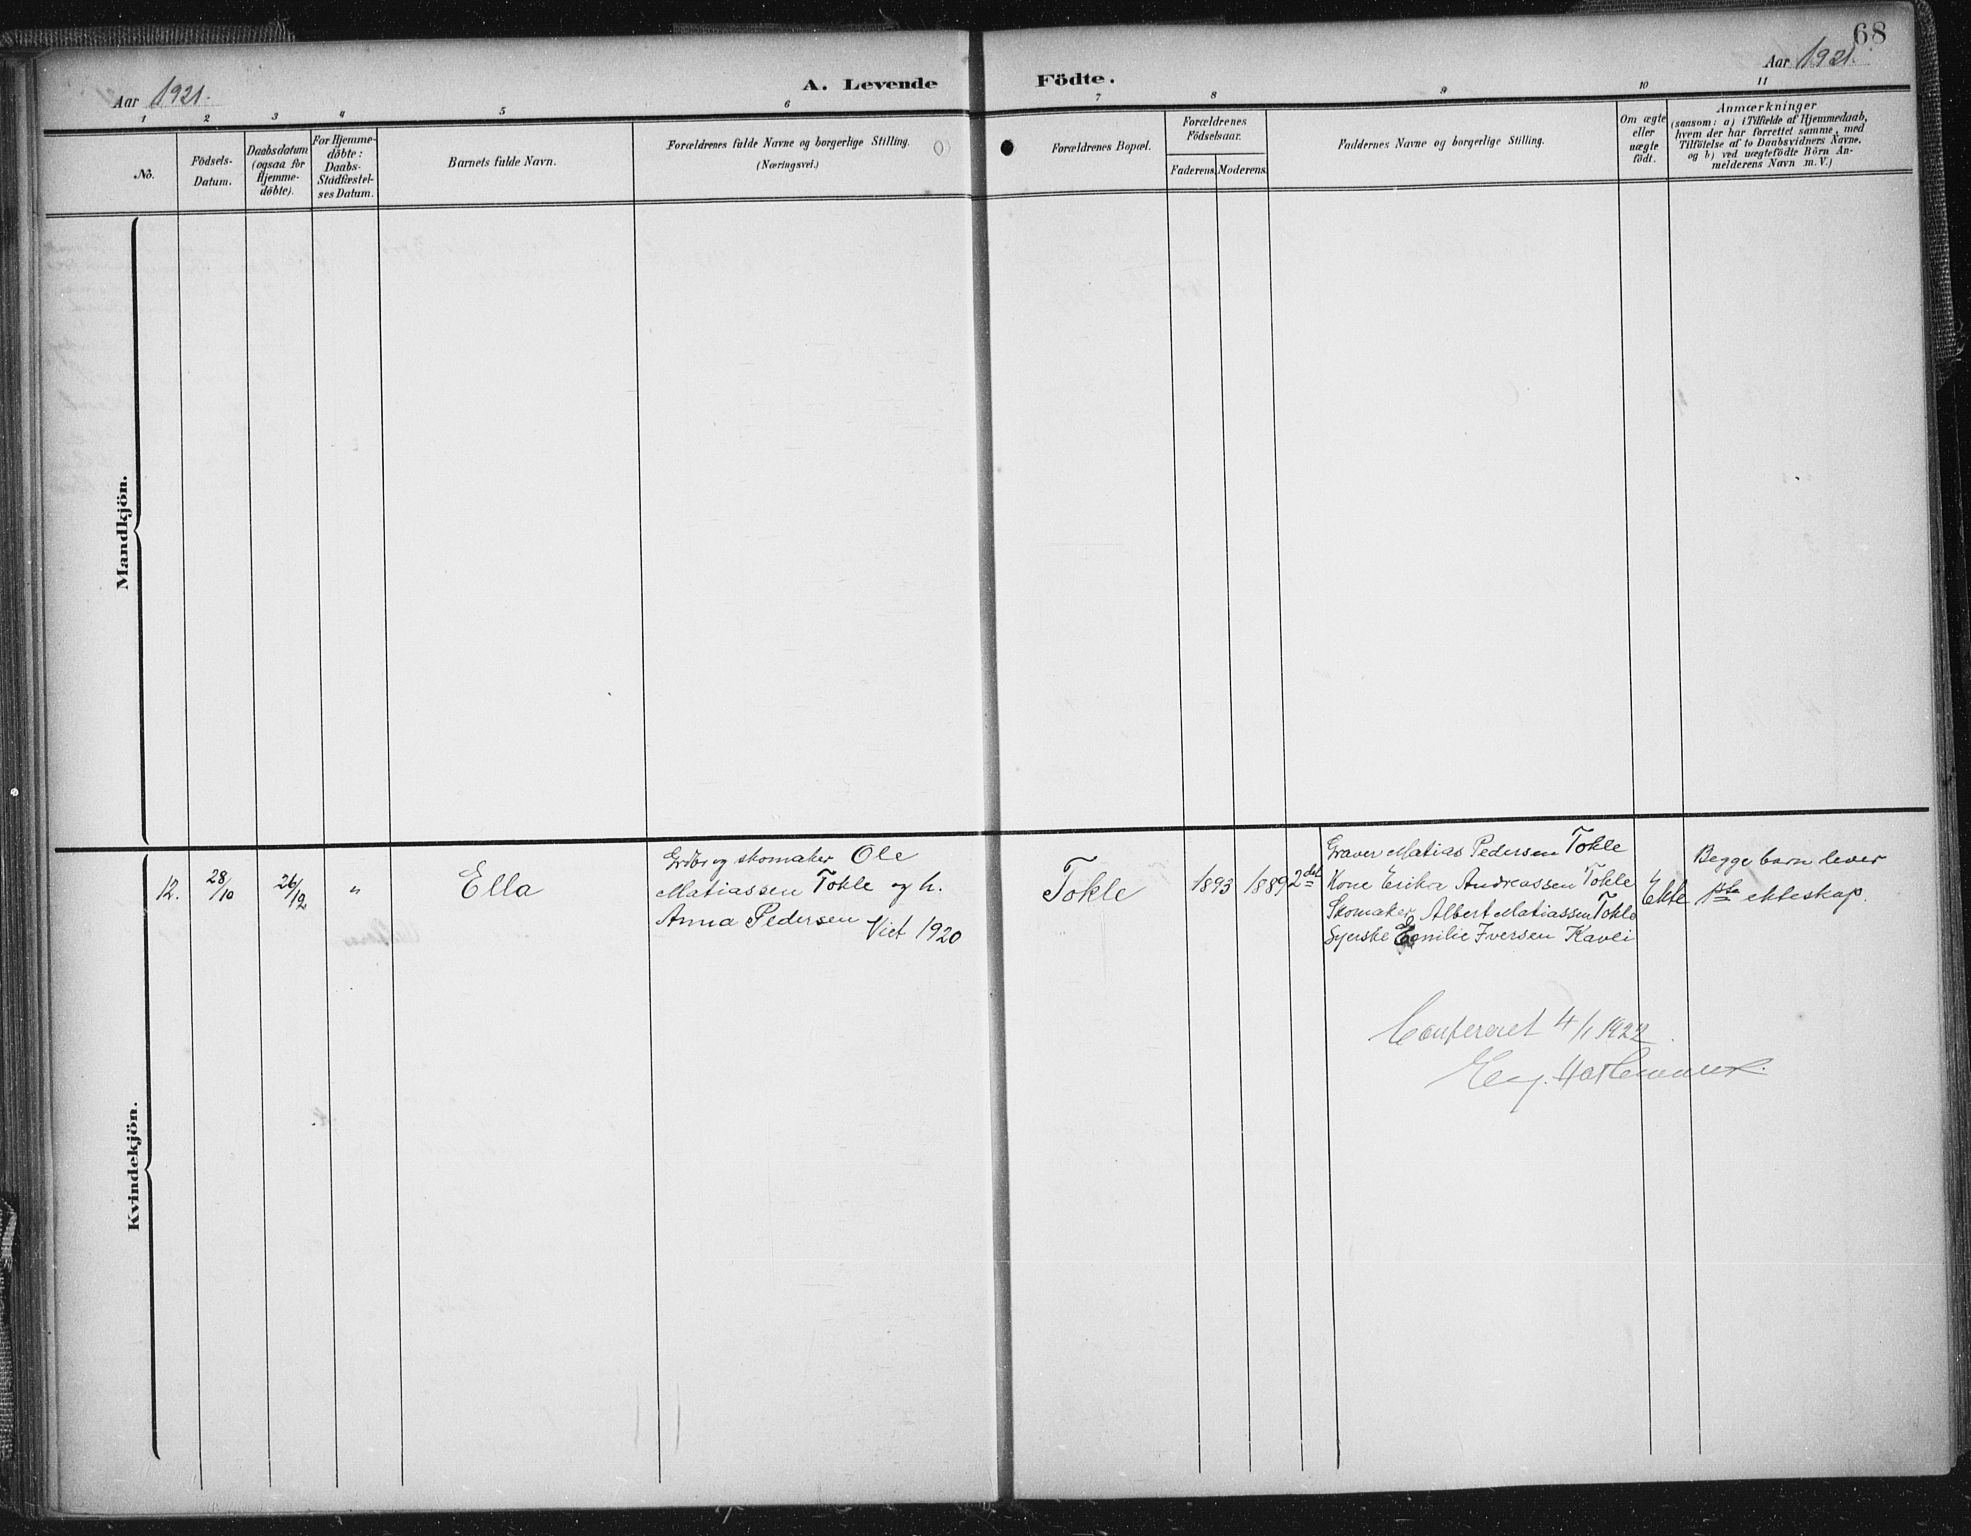 68
Aar 1921.
A. Levende Födte.
Aar 1921.
1 2 3 4 5 6 7 8 9 10 11
No.
Födsels-
Datum.
Daabsdatum
(ogsaa for
Hjemme-
döbte).
For Hjemme-
döbte:
Daabs-
Stadfæstel-
ses Datum.
Barnets fulde Navn.
Forældrenes fulde Navne og borgerlige Stilling.
(Næringsvei.)
Forældrenes Bopæl.
Forældrenes
Födselsaar.
Faderens. Moderens.
Faddernes Navne og borgerlige Stilling.
Om ægte
eller
uægte
födt.
Anmærkninger
(saasom: a) i Tilfælde af Hjemmedaab,
hvem der har forrettet samme, med
Tilföielse af to Daabsvidners Navne,
og b) ved uægtefödte Börn An-
melderens Navn m. V.)
Mandkjön.
Kvindekjön.
12.
28/10
26/12
"
Ella
og skomaker Ole
Matiassen Tokle og h.
Anna Pedersen Viet 1920
Tokle
1893
1889
2det
Graver Matias Pedersen Tokle
Kone Erika Andreassen Tokle
Skomaker Albert Matiassen Tokle
Syerske Emilie Iversen Kavli
Ekte
Begge barn lever
1ste ekteskap.
Confereret 4/1 1922.